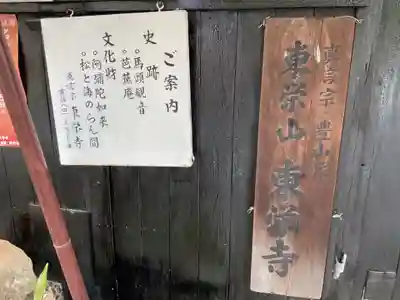 真言宗 豊山派
東栄山 東福寺
ご案内
史跡
。馬頭観音
。芭蕉庵
文化財
。阿彌陀如来
。松と海のらん間